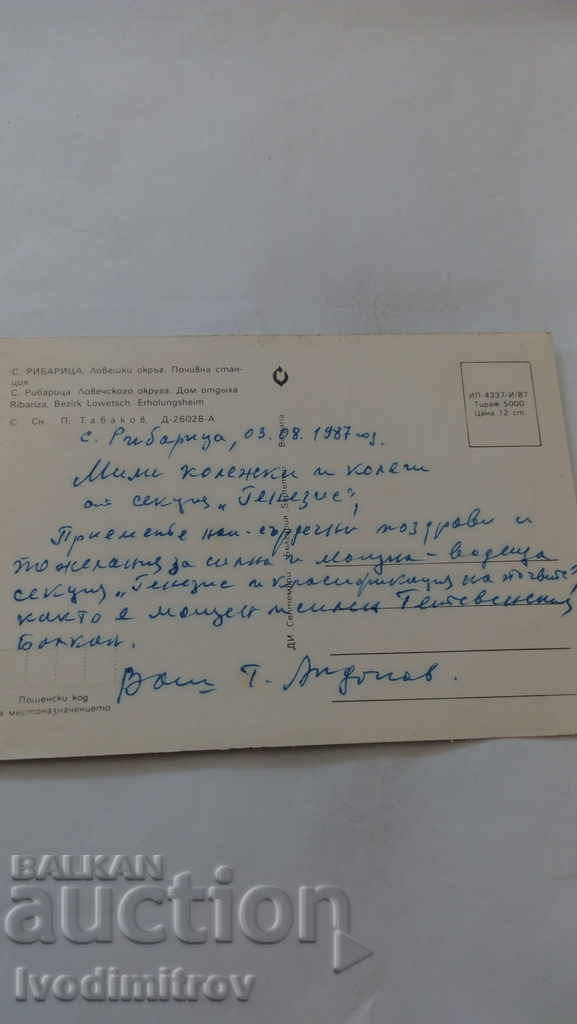 С. РИБАРИЦА, Ловешки окръг. Почивна стан-
ция
С. Рибарица Ловечского округа. Дом отдыха
Ribariza, Bezirk Lowetsch. Erholungsheim
© Сн. П. Табаков, Д-26028-А
ИП-4337-И/87
Тираж 5000
Цена 12 ст.
с. Рибарица, 03.08.1987 год.
Мили колежки и колеги
от секция "Генезис",
Приемете най-сърдечни поздрави и
пожелания за силна и мощна-водеща
секция "Генезис и класификация на почвите",
както е мощен и силен Тетевенския
Балкан.
Ваш Т. Андонов.
ДИ Септември България Septemvri Bulgaria
Пощенски код
а местоназначението
BALKAN
auction
Ivodimitrov